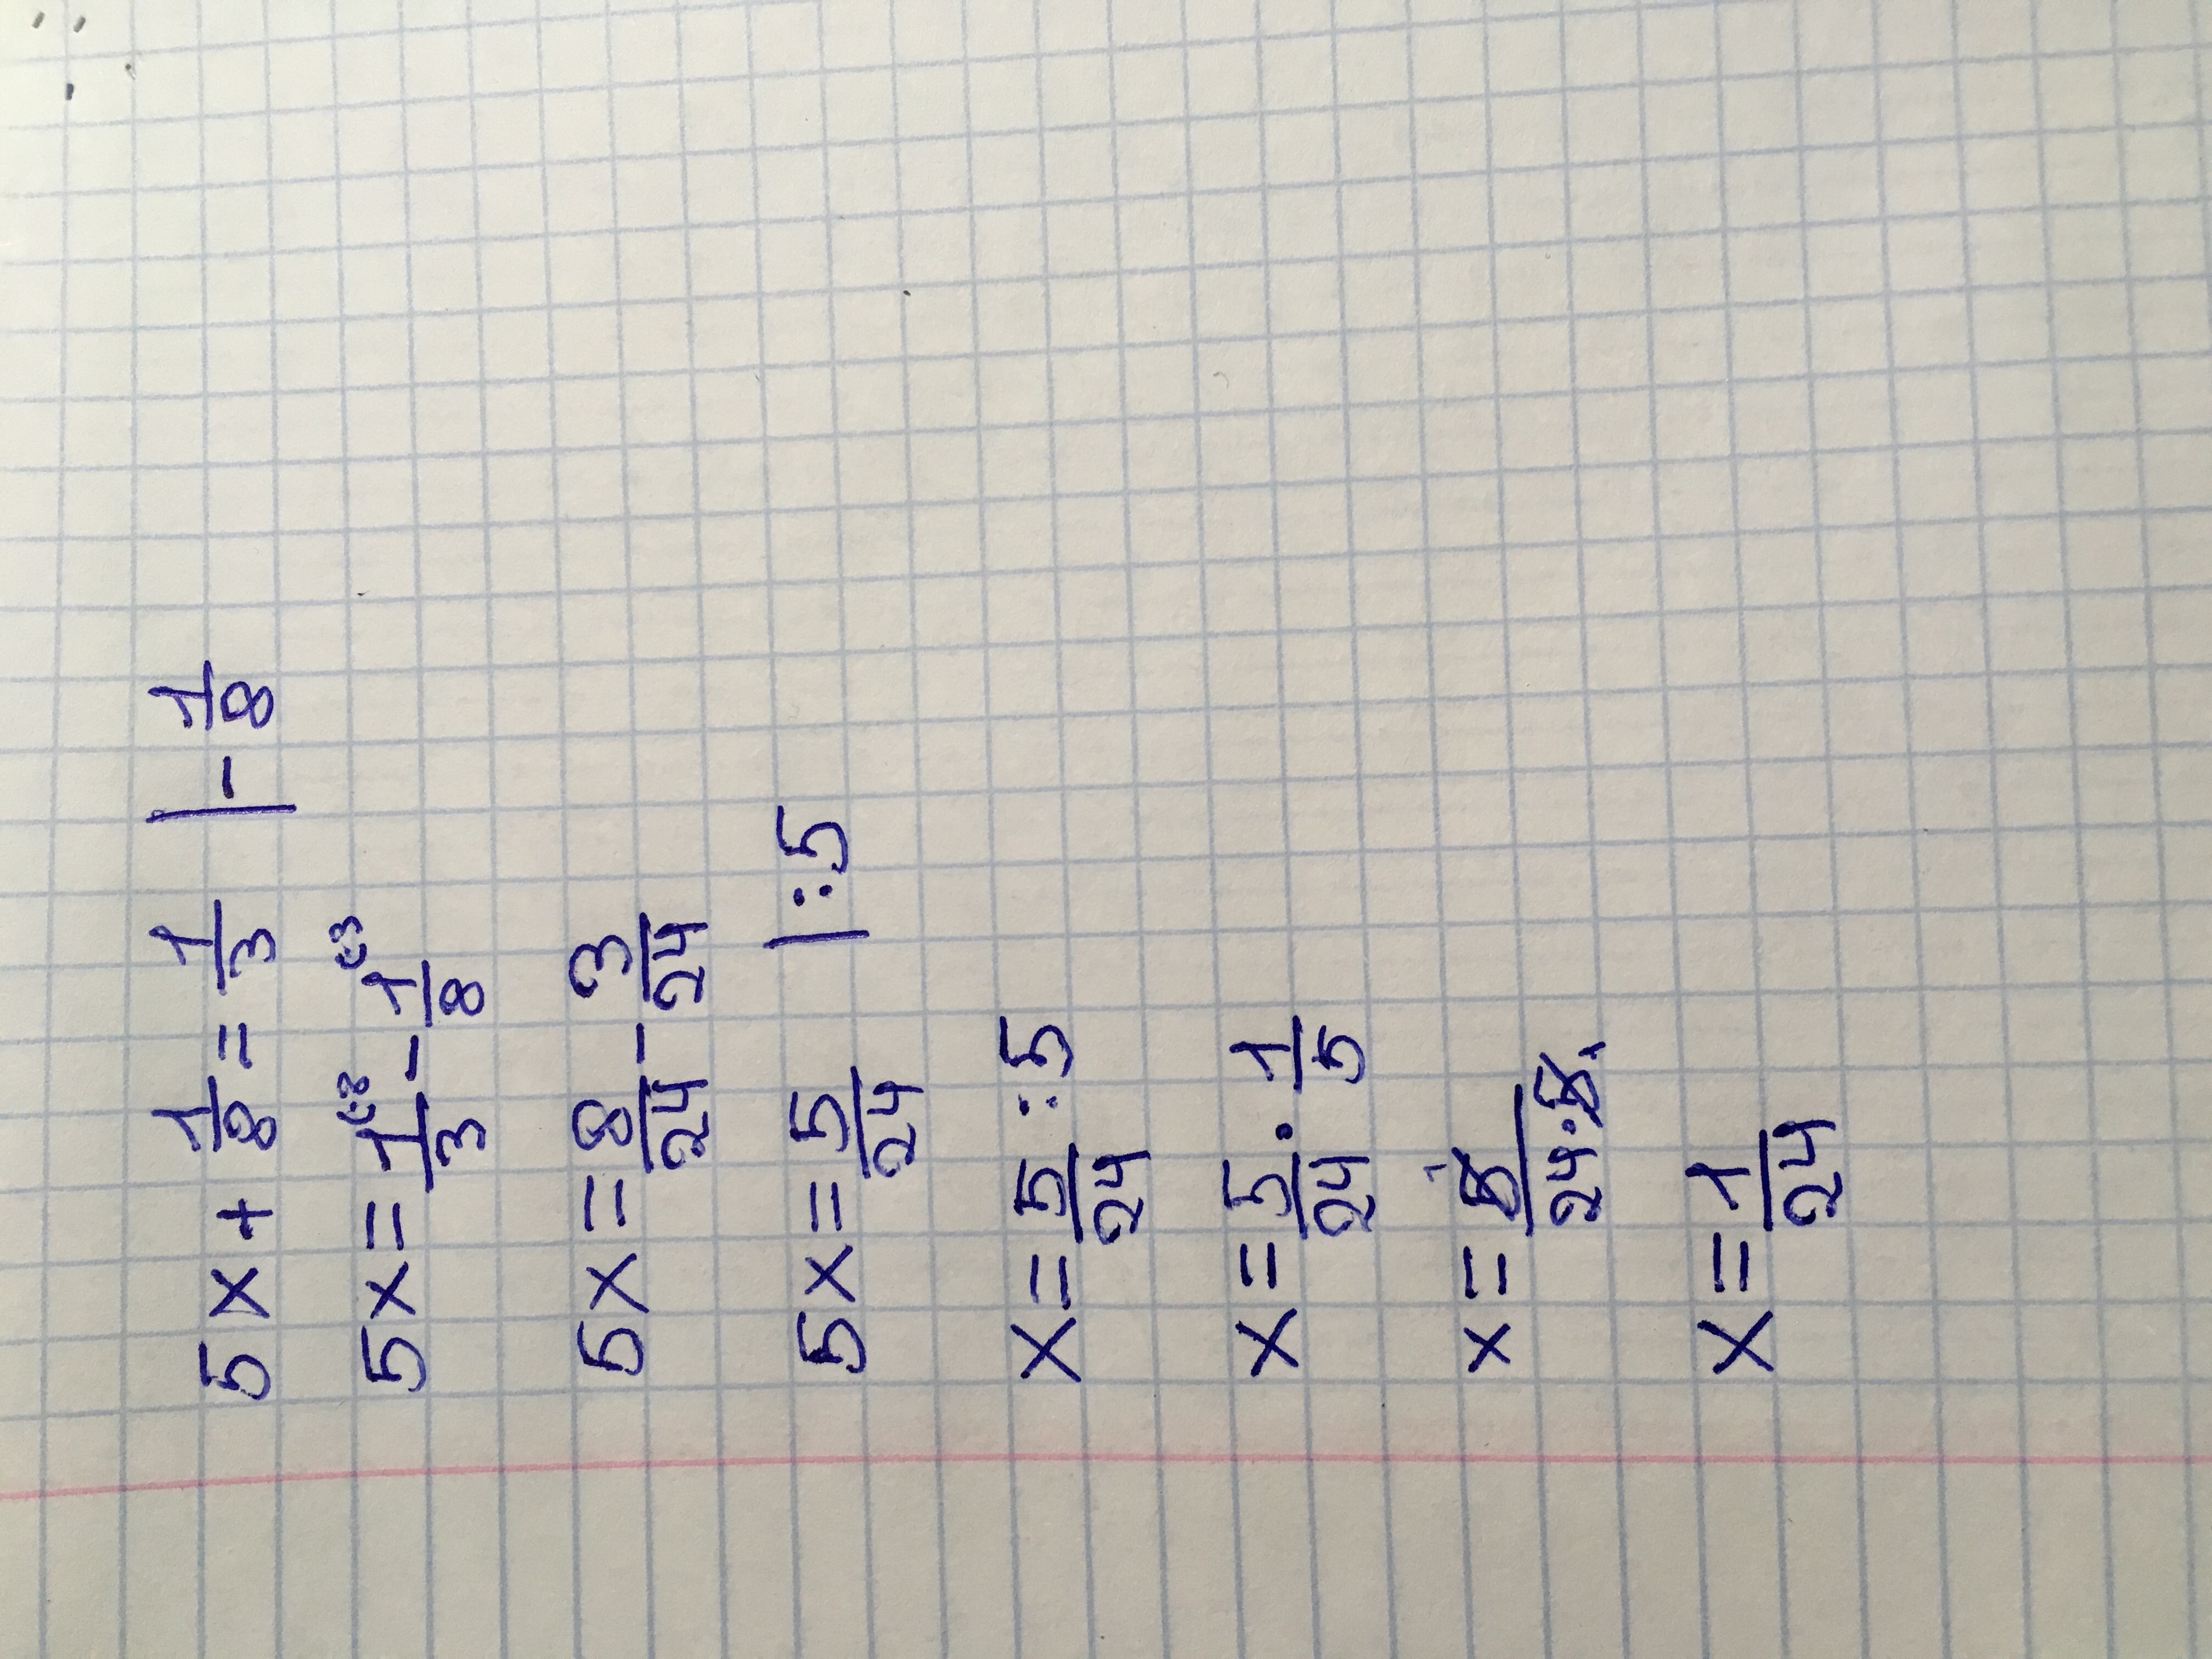 5x + 1/8 = 1/3 | - 1/8
5x = 1/3 (·8 - 1/8 (·3
5x = 8/24 - 3/24
5x = 5/24 | :5
x = 5/24 :5
x = 5/24 · 1/5
x = 5/24·5
x = 1/24